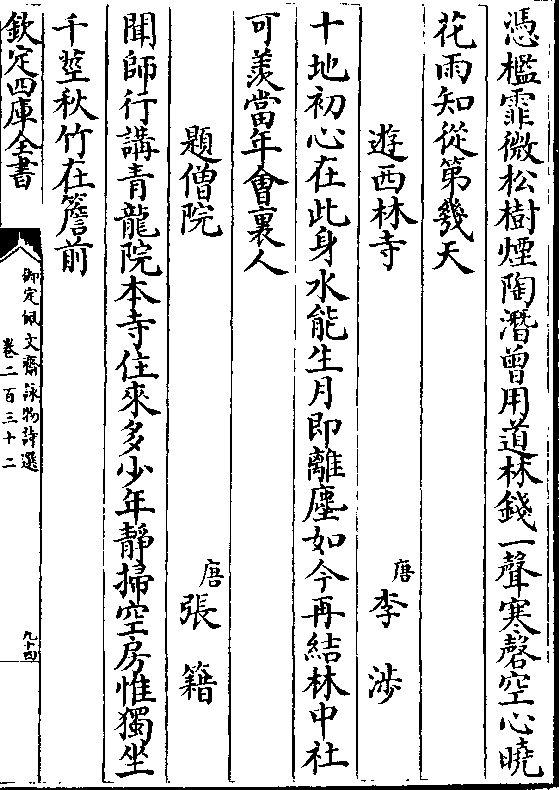 憑檻霏微松樹煙陶潛曾用道林錢一聲寒磬空心曉
花雨知從第幾天
遊西林寺
唐李涉
十地初心在此身水能生月即離塵如今再結林中社
可羨當年會裏人
題僧院
唐張籍
聞師行講青龍院本寺住來多少年靜掃空房惟獨坐
千莖秋竹在簷前
欽定四庫全書
御定佩文齋詠物詩選
卷二百三十二
九十四